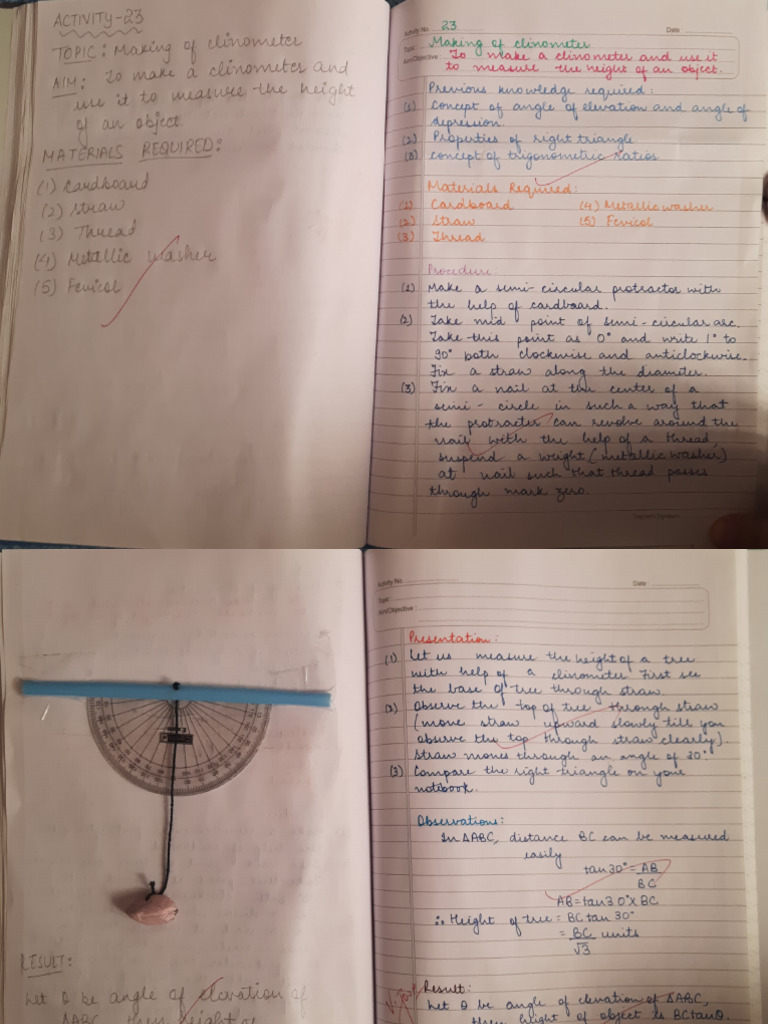 ACTIVITY-23
TOPIC: Making of clinometer
AIM: To make a clinometer and
use it to measure the height
of an object.
MATERIALS REQUIRED:
(1) Cardboard
(2) Straw
(3) Thread
(4) Metallic washer
(5) Fevicol
Activity No. 23 Date
Topic: Making of clinometer
Aim/Objective: To make a clinometer and use it
to measure the height of an object.
Previous knowledge required:
(1) Concept of angle of elevation and angle of
depression.
(2) Properties of right triangle
(3) concept of trigonometric ratios
Materials Required:
(1) Cardboard (4) Metallic washer
(2) Straw (5) Fevicol
(3) Thread
Procedure:
(1) Make a semi-circular protractor with
the help of cardboard.
(2) Take mid point of semi-circular arc.
Take this point as 0° and write 1° to
90° both clockwise and anticlockwise.
Fix a straw along the diameter.
(3) Fix a nail at the center of a
semi-circle in such a way that
the protracter can revolve around the
nail with the help of a thread,
suspend a weight (metallic washer)
at nail such that thread passes
through mark zero.
Teacher's Signature
Activity No. Date
Topic:
Aim/Objective:
Presentation:
(1) Let us measure the height of a tree
with help of a clinometer First see
the base of tree through straw.
(2) Observe the top of tree through straw
(move straw upward slowly till you
observe the top through straw clearly).
Straw moves through an angle of 30°.
(3) Compare the right triangle on your
notebook.
Observations:
In ΔABC, distance BC can be measured
easily
tan 30° = AB
BC
AB = tan30° x BC
∴ Height of tree = BC tan 30°
= BC units
√3
RESULT:
Let θ be angle of elevation of
ΔABC, then height of
Result:
Let θ be angle of elevation of ΔABC,
then height of object is BC tanθ.